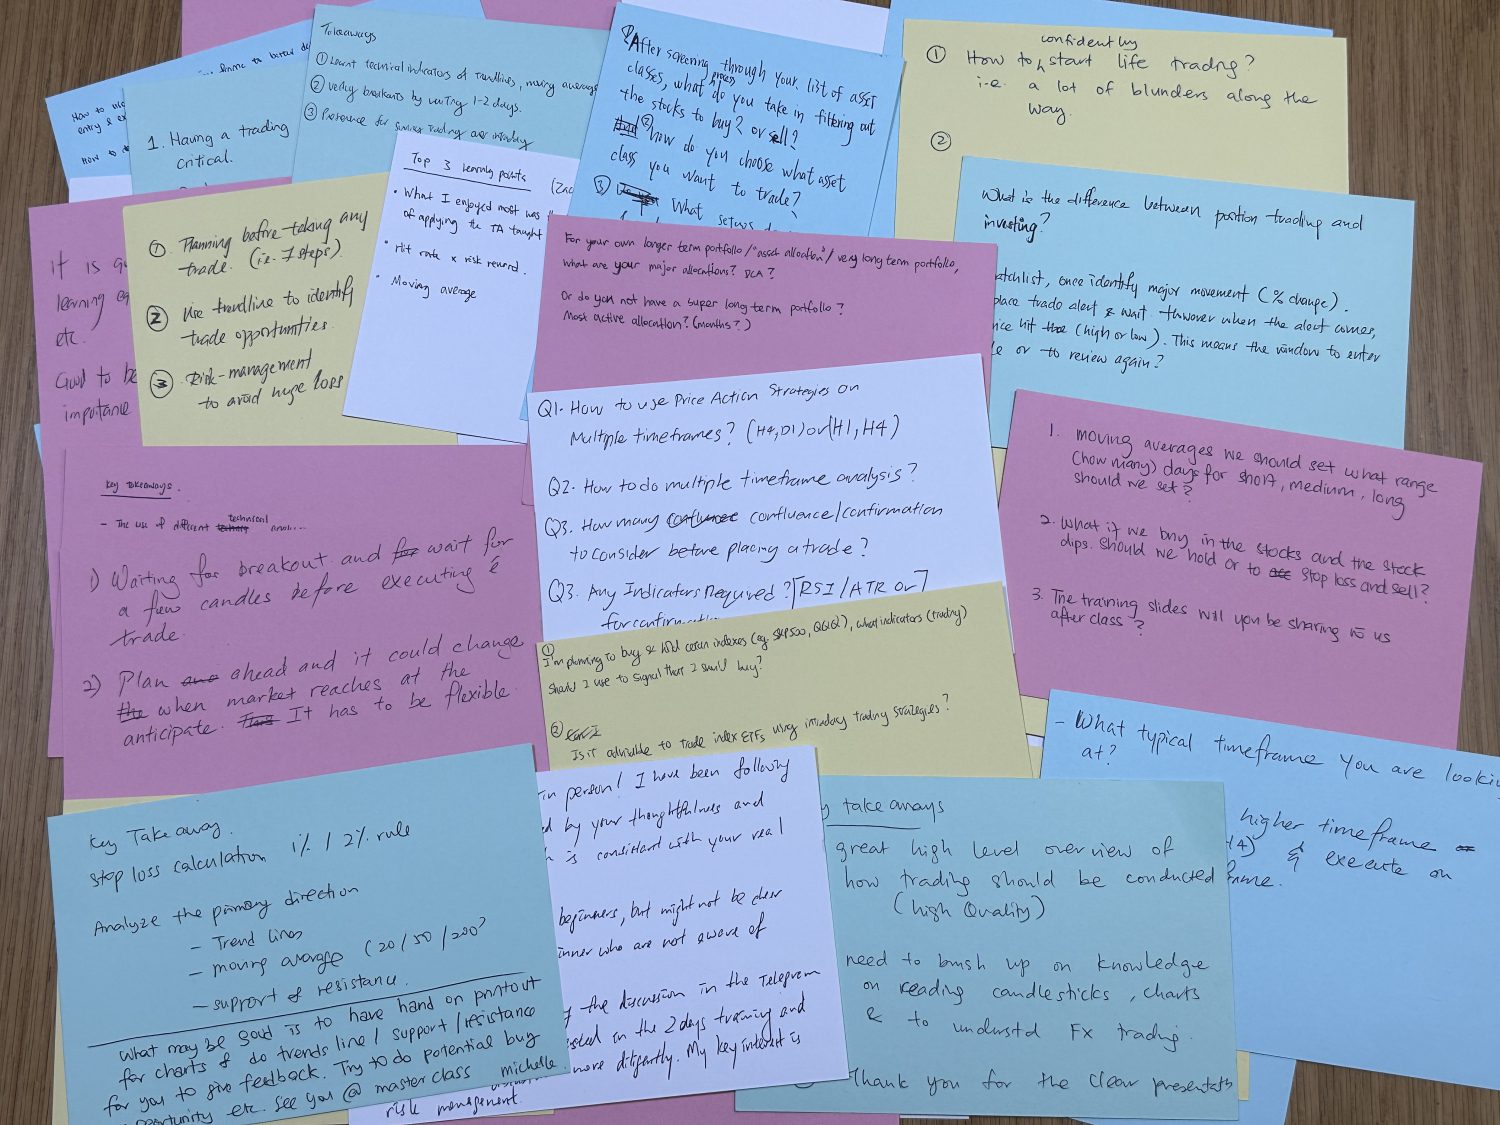 How to
entry & ex
How to
frame to
1. Having a trading
critical.
Takeaways
① Learnt technical indicators of trendlines, moving average
② Verify breakouts by waiting 1-2 days.
③ Preference for swing trading over intraday
After screening through your list of asset
classes, what process do you take in filtering out
the stocks to buy? or sell?
② how do you choose what asset
class you want to trade?
③ What setups
① How to confidently start life trading?
i.e. a lot of blunders along the
way.
②
What is the difference between position trading and
investing?
atchlist, once identify major movement (% change).
place trade alert & wait. However when the alert comes,
ice hit the (high or low). This means the window to enter
e or to review again?
it is
learning
etc.
Good to be
importance
① Planning before taking any
trade. (i.e. 7 steps).
② Use trendline to identify
trade opportunities.
③ Risk-management
to avoid huge loss
Top 3 learning points (Zac
• What I enjoyed most was
of applying the TA taught
• Hit rate x risk reward.
• Moving average
For your own longer term portfolio/"asset allocation"/very long term portfolio,
what are your major allocations? DCA?
Or do you not have a super long term portfolio?
Most active allocation? (months?)
Q1. How to use Price Action Strategies on
Multiple timeframes? (H4, D1) or (H1, H4)
Q2. How to do multiple timeframe analysis?
Q3. How many confluence/confirmation
to consider before placing a trade?
Q3. Any Indicators Required? [RSI / ATR or]
for confirmation
1. moving averages we should set what range
(how many) days for short, medium, long
should we set?
2. What if we buy in the stocks and the stock
dips. Should we hold or to stop loss and sell?
3. The training slides will you be sharing to us
after class?
Key takeaways.
- The use of different technical
1) Waiting for breakout and wait for
a few candles before executing
trade.
2) Plan ahead and it could change
when market reaches at the
anticipate. It has to be flexible
①
I'm planning to buy & hold certain indexes (eg. S&P500, QQQ), what indicators (trading)
should I use to signal that I should buy?
②
Is it advisable to trade index ETFs using intraday trading strategies?
- What typical timeframe you are looking
at?
higher timeframe
H4) & execute on
frame.
Key Takeaway.
stop loss calculation 1% / 2% rule
Analyze the primary direction
- Trend lines
- moving average (20/50/200)
- support & resistance.
What may be good is to have hand on printout
for charts & do trends line / support / resistance
for you to give feedback. Try to do potential buy
opportunity etc. See you @ masterclass michelle.
in person! I have been following
ed by your thoughtfulness and
h is consistant with your real
beginners, but might not be clear
inner who are not aware of
f the discussion in the
in the 2 days training and
more diligently. My key interest is
risk management.
y take aways
great high level overview of
how trading should be conducted
(high Quality)
need to brush up on knowledge
on reading candlesticks, charts
& to understd FX trading.
Thank you for the clear presentat